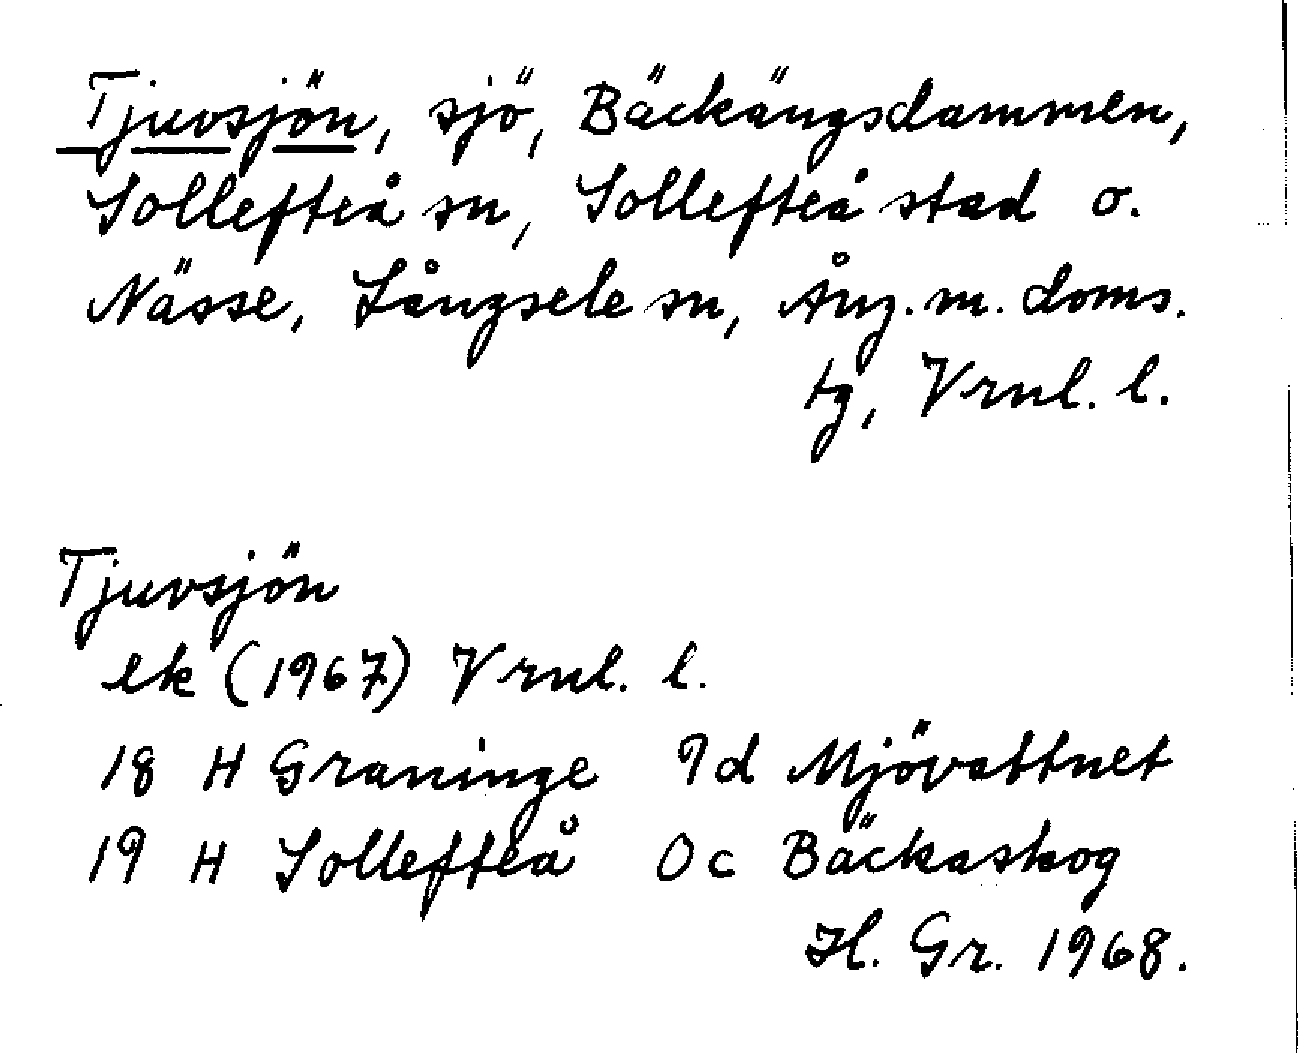 Tjuvsjön, sjö, Bäckängsdammen,
Sollefteå sn, Sollefteå stad o.
Nässe, Långsele sn, Ång. m. doms.
tg, Vrnl. l.
Tjuvsjön
ek (1967) Vrnl. l.
18 H Graninge 9d Mjövattnet
19 H Sollefteå 0c Bäckaskog
Hl. Gr. 1968.